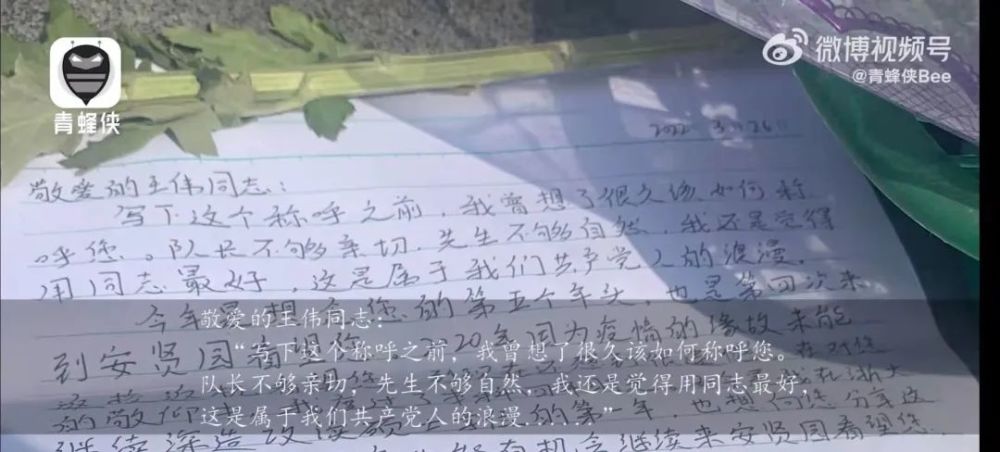 青蜂侠
微博视频号
@青蜂侠Bee
2022 3 26
敬爱的王伟同志：
写下这个称呼之前，我曾想了很久该如何称
呼您。队长不够亲切，先生不够自然，我还是觉得
用同志最好，这是属于我们共产党人的浪漫。
今年 想 您的第五个年头，也是第四次来
到安贤园看望 20年因为疫情的缘故未能
敬仰 在浙大
继续深造攻读 的第一年，也想向您分享这
有机会继续来安贤园看望您
敬爱的王伟同志：
“写下这个称呼之前，我曾想了很久该如何称呼您。
队长不够亲切，先生不够自然，我还是觉得用同志最好，
这是属于我们共产党人的浪漫……”